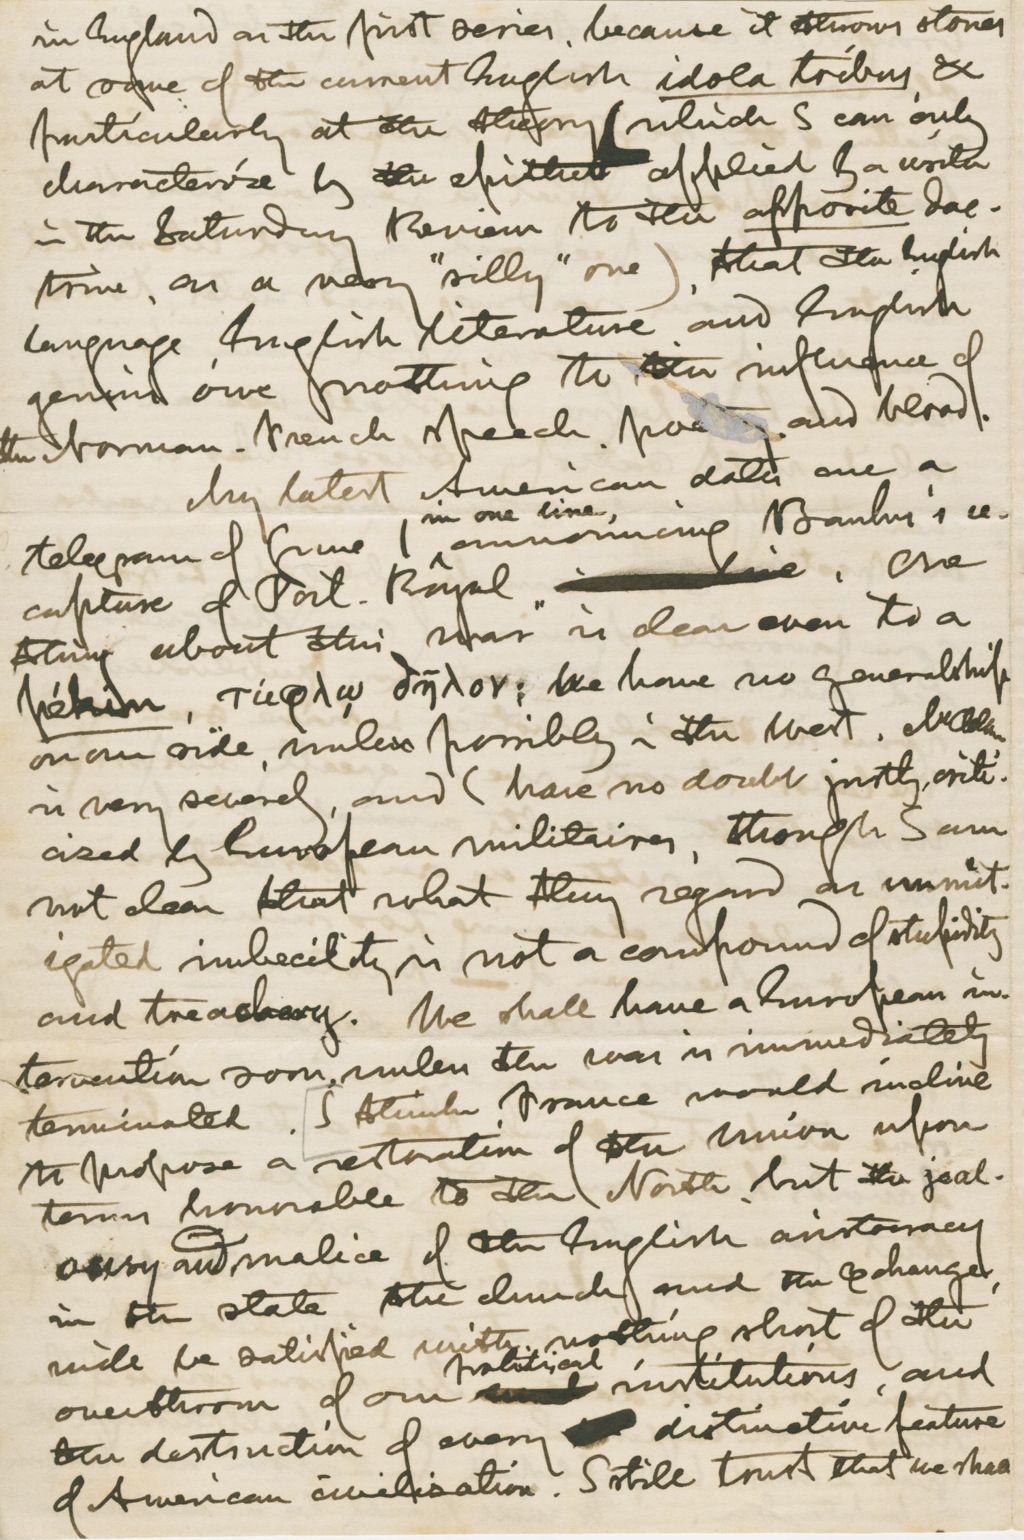 in England as the first series, because it throws stones
at some of the current English idola tribus, &
particularly at the theory (which I can only
characterise by the epithet applied by a writer
in the Saturday Review to the opposite doc-
trine, as a very "silly" one), that the English
language, English literature and English
genius owe nothing to the influence of
the Norman-French speech, poetry, and blood.
My latest American data are a
telegram of June 1 in one line, announcing Banks's re-
capture of Port-Royal. One
thing about this "war" is clear even to a
pékin, τυφλῷ δῆλον; We have no generalship
on our side, unless possibly in the West. McClellan
is very severely, and I have no doubt justly, criti-
cized by European militaires, though I am
not clear that what they regard as unmit-
igated imbecility is not a compound of stupidity
and treachery. We shall have a European in-
tervention soon, unless the war is immediately
terminated. I think France would incline
to propose a restoration of the Union upon
terms honorable to the North, but the jeal-
ousy and malice of the English aristocracy
in the state the church and the exchange,
will be satisfied with nothing short of the
overthrow of our political institutions, and
the destruction of every distinctive feature
of American civilisation. I still trust that we shall